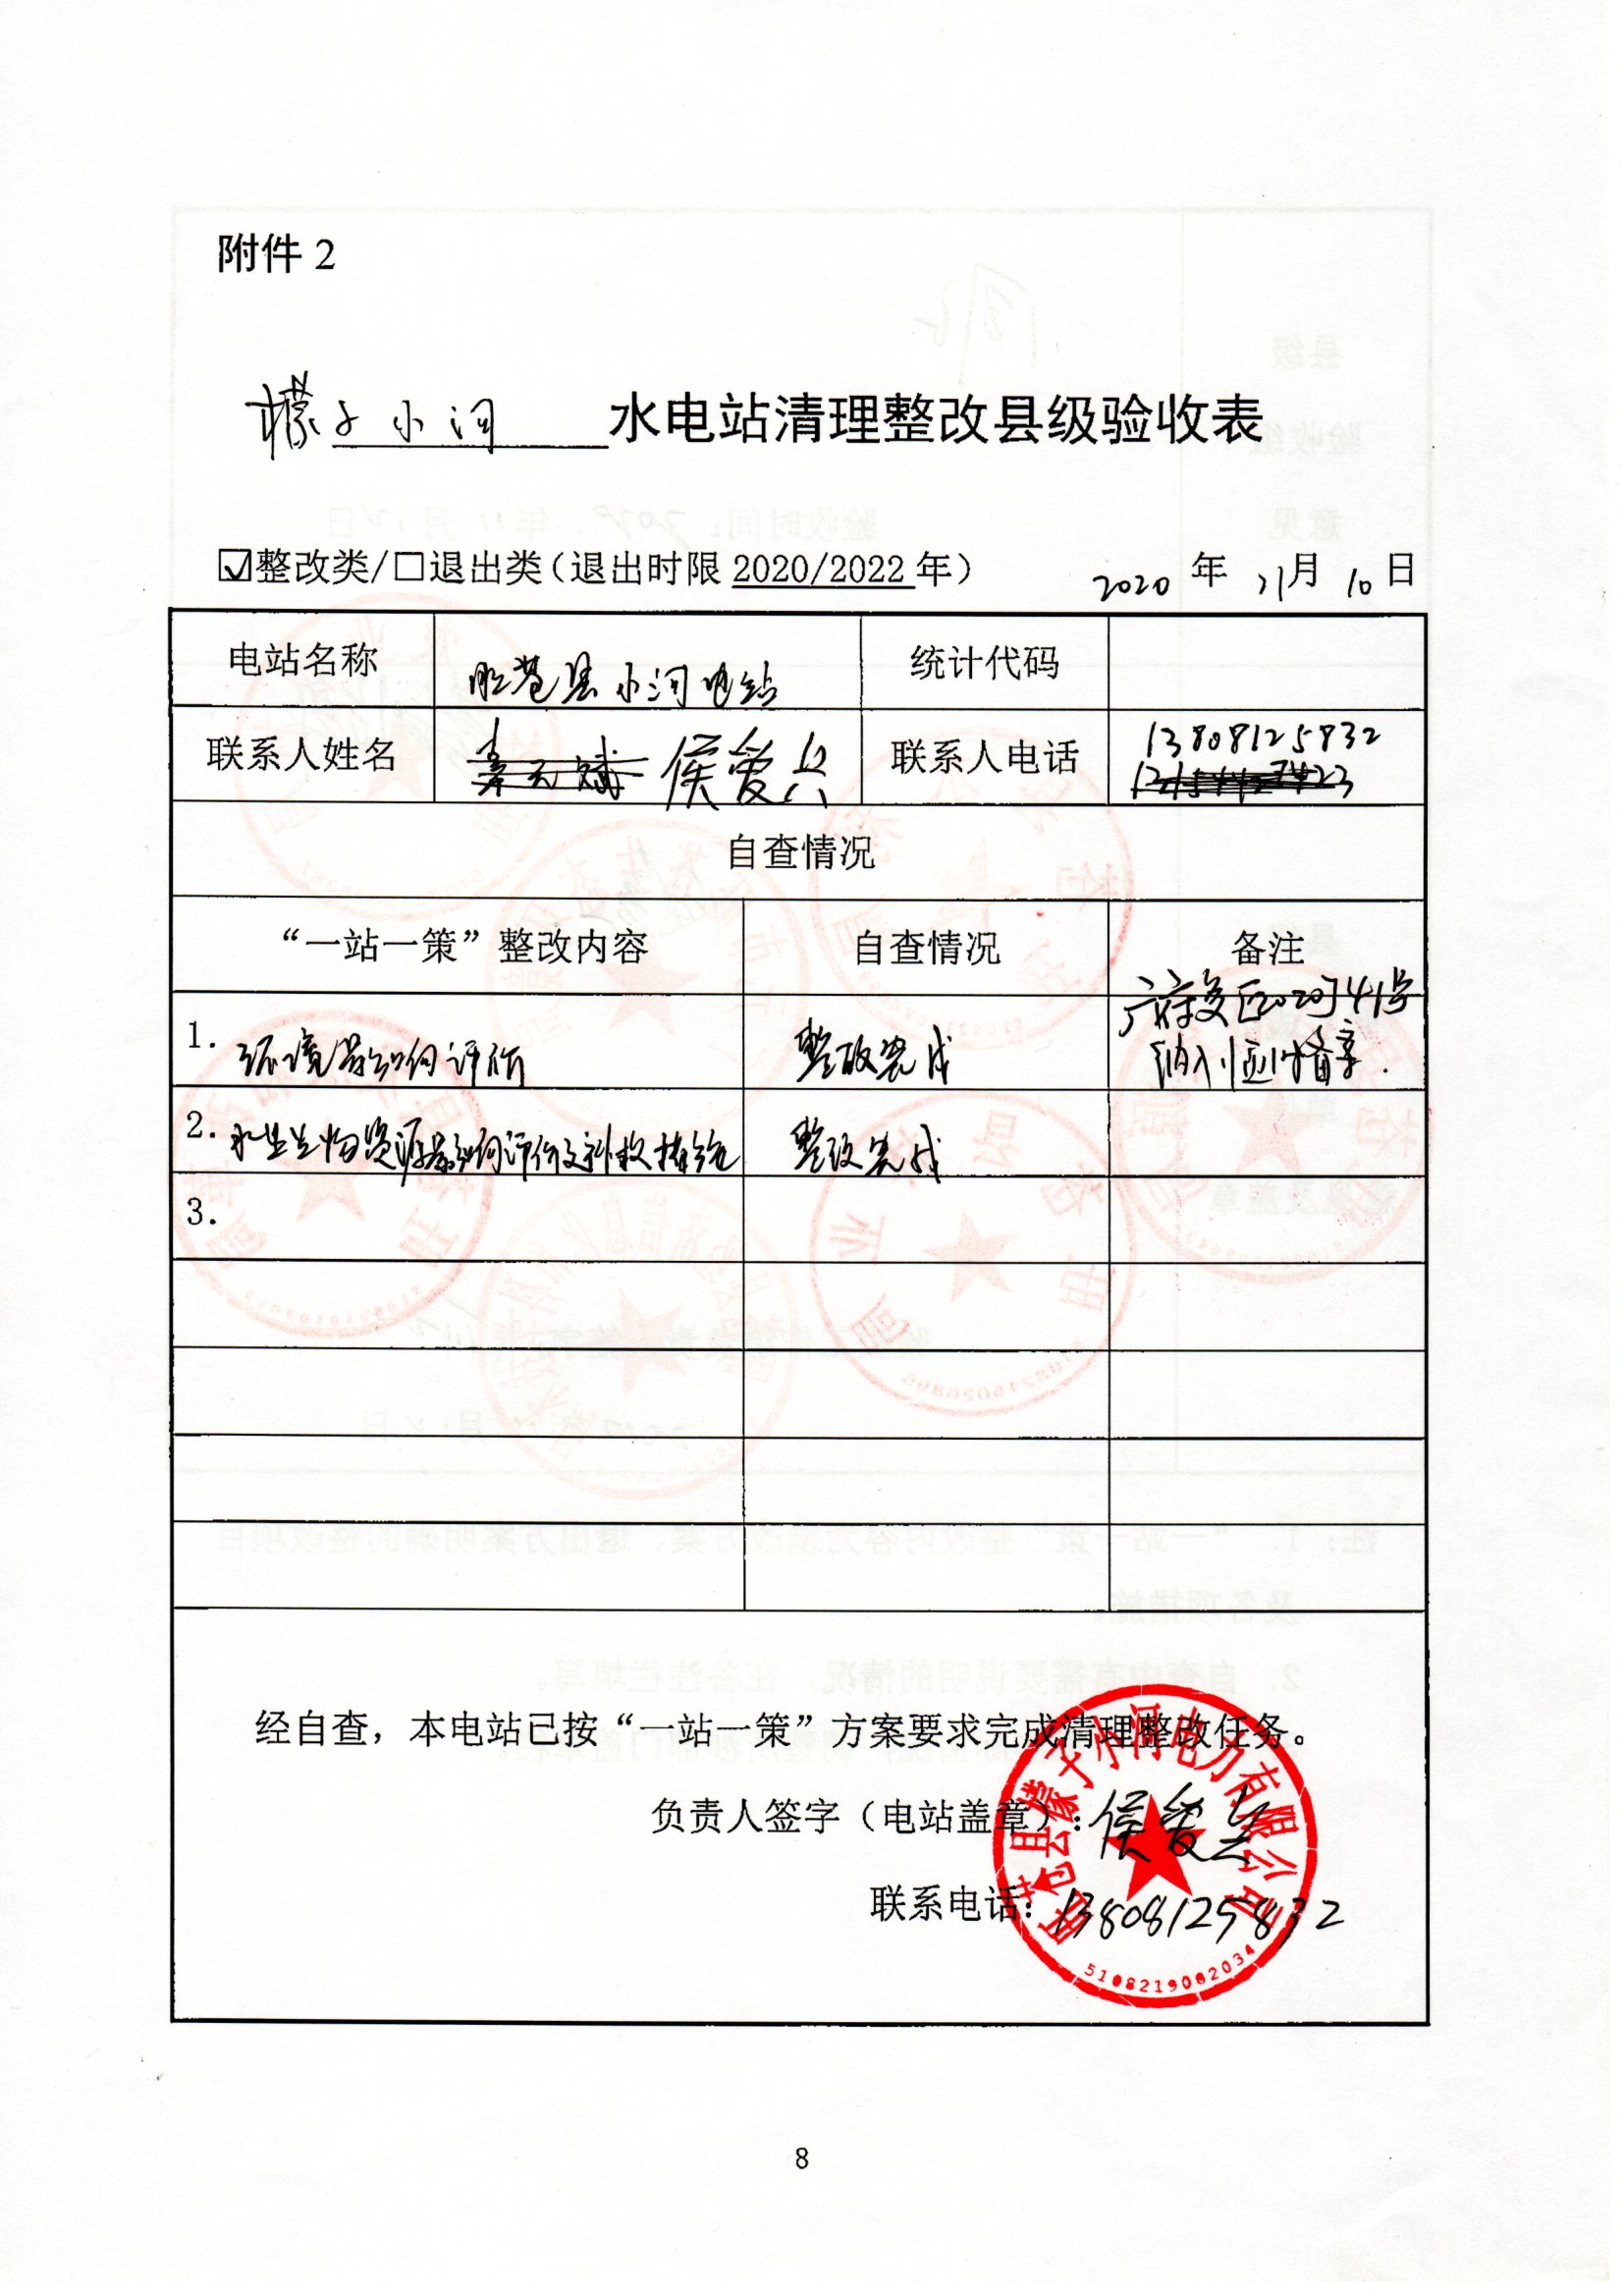 附件 2
檬子小河 水电站清理整改县级验收表
☑整改类/□退出类（退出时限 2020/2022 年） 2020 年 11月 10 日
电站名称 旺苍县小河电站 统计代码
联系人姓名 侯爱兵 联系人电话 13808125832
自查情况
“一站一策”整改内容 自查情况 备注
1. 环境影响评价 整改完成 广府复〔2020〕41号
2. 水生生物资源影响评价及补救措施 整改完成
3.
经自查，本电站已按“一站一策”方案要求完成清理整改任务。
负责人签字（电站盖章）：侯爱兵
联系电话：13808125832
旺苍县檬子小河电力有限公司
5108219002034
8